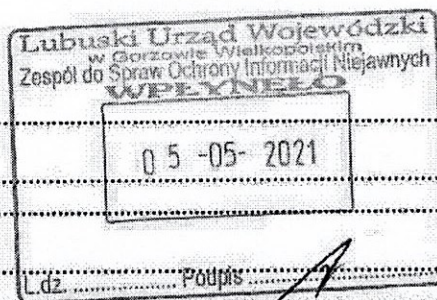 Lubuski Urząd Wojewódzki
w Gorzowie Wielkopolskim
Zespół do Spraw Ochrony Informacji Niejawnych
WPŁYNĘŁO
05 -05- 2021
L.dz. .................... Podpis ....................